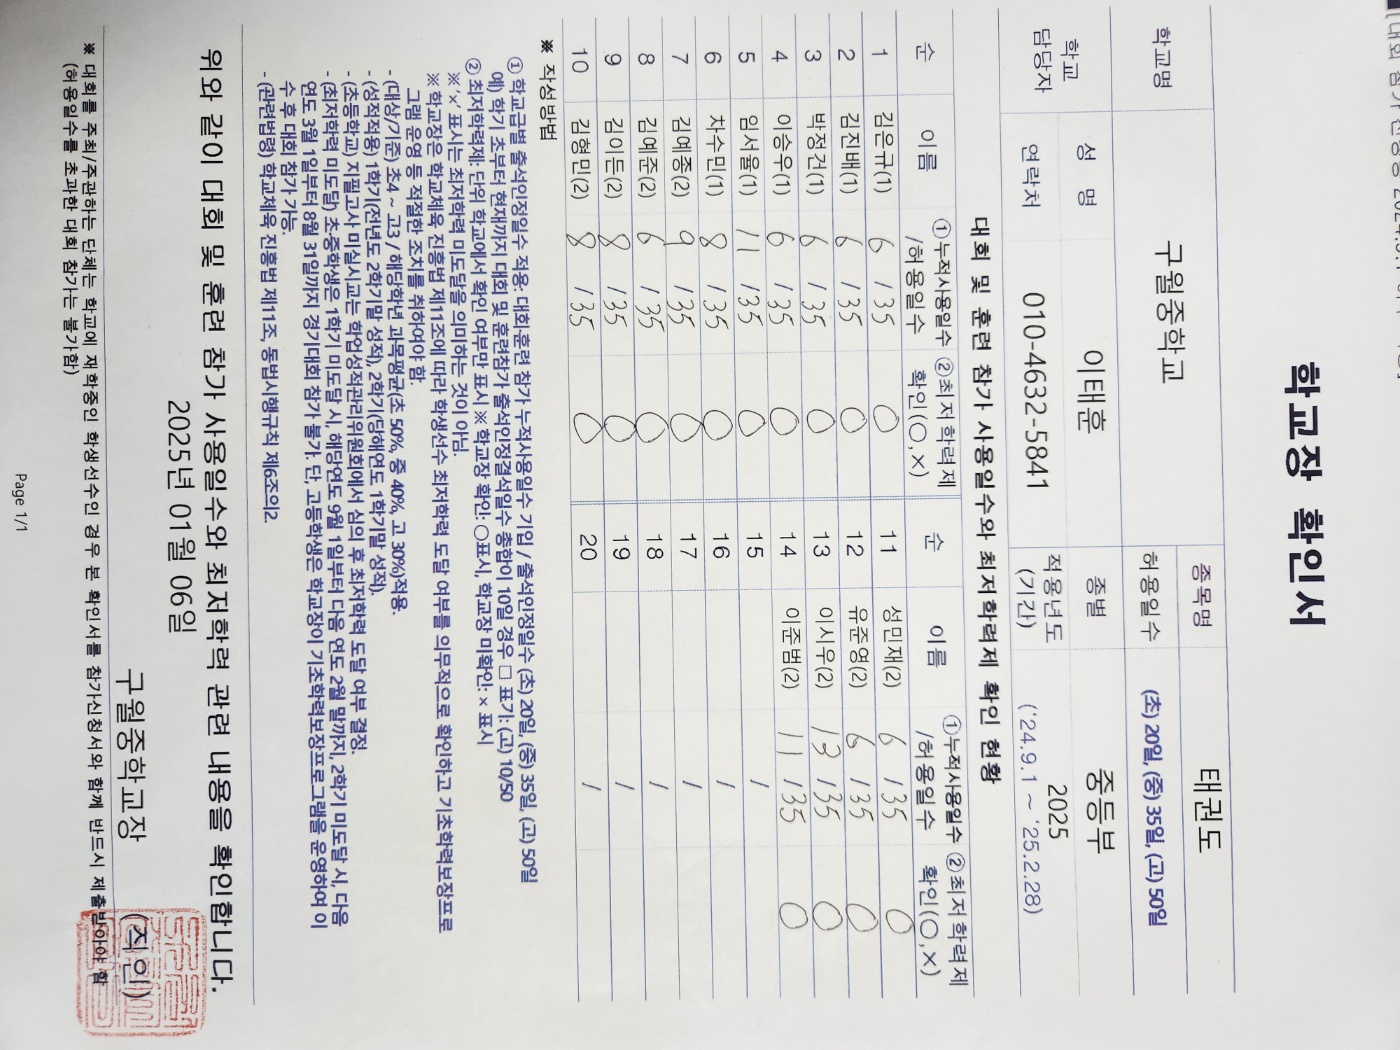 학교장 확인서
학교명 구월중학교 종목명 태권도
허용일수 (초) 20일, (중) 35일, (고) 50일
학교 담당자 성 명 이태훈 종별 중등부
연락처 010-4632-5841 적용년도 (기간) 2025 ('24.9.1 ~ '25.2.28)
대회 및 훈련 참가 사용일수와 최저학력제 확인 현황
순 이름 ①누적사용일수 /허용일수 ②최저학력제 확인(○,×) 순 이름 ①누적사용일수 /허용일수 ②최저학력제 확인(○,×)
1 김은규(1) 6 / 35 ○ 11 성민재(2) 6 / 35 ○
2 김진배(1) 6 / 35 ○ 12 유준영(2) 6 / 35 ○
3 박정건(1) 6 / 35 ○ 13 이시우(2) 13 / 35 ○
4 이승우(1) 6 / 35 ○ 14 이준범(2) 11 / 35 ○
5 임서율(1) 11 / 35 ○ 15 /
6 차수민(1) 8 / 35 ○ 16 /
7 김예종(2) 9 / 35 ○ 17 /
8 김예준(2) 6 / 35 ○ 18 /
9 김이든(2) 8 / 35 ○ 19 /
10 김형민(2) 8 / 35 ○ 20 /
※ 작성방법
① 학교급별 출석인정일수 적용: 대회·훈련 참가 누적사용일수 기입 / 출석인정일수 (초) 20일, (중) 35일, (고) 50일
예) 학기 초부터 현재까지 대회 및 훈련참가 출석인정결석일수 총합이 10일 경우 □ 표기: (고) 10/50
② 최저학력제: 단위 학교에서 확인 여부만 표시 ※ 학교장 확인: ○표시, 학교장 미확인: × 표시
※ '×' 표시는 최저학력 미도달을 의미하는 것이 아님.
※ 학교장은 학교체육 진흥법 제11조에 따라 학생선수 최저학력 도달 여부를 의무적으로 확인하고 기초학력보장프로
그램 운영 등 적절한 조치를 취하여야 함.
- (대상/기준) 초4 ~ 고3 / 해당학년 과목평균(초 50%, 중 40%, 고 30%)적용.
- (성적적용) 1학기(전년도 2학기말 성적), 2학기(당해연도 1학기말 성적).
- (초등학교) 지필고사 미실시교는 학업성적관리위원회에서 심의 후 최저학력 도달 여부 결정.
- (최저학력 미도달) 초·중학생은 1학기 미도달 시, 해당연도 9월 1일부터 다음 연도 2월 말까지, 2학기 미도달 시, 다음
연도 3월 1일부터 8월 31일까지 경기대회 참가 불가. 단, 고등학생은 학교장이 기초학력보장프로그램을 운영하여 이
수 후 대회 참가 가능.
- (관련법령) 학교체육 진흥법 제11조, 동법시행규칙 제6조의2.
위와 같이 대회 및 훈련 참가 사용일수와 최저학력 관련 내용을 확인합니다.
2025년 01월 06일
구월중학교장 (직인)
※ 대회를 주최/주관하는 단체는 학교에 재학중인 학생선수인 경우 본 확인서를 참가신청서와 함께 반드시 제출받아야 함
(허용일수를 초과한 대회 참가는 불가함)
Page 1/1